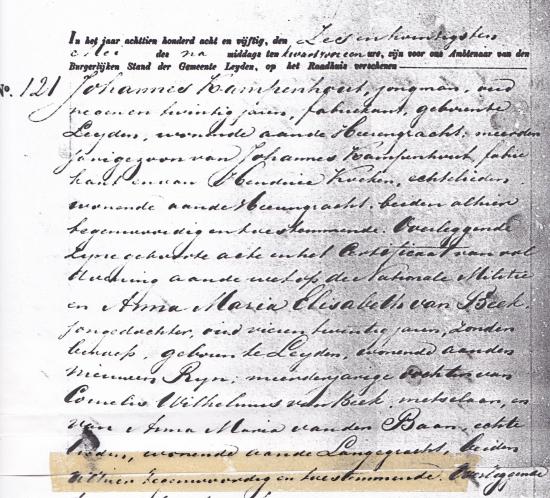 In het jaar achttien honderd acht en vijftig, den Zes en twintigsten
Mei des na middags ten twaalf ure, zijn voor ons Ambtenaar van den
Burgerlijken Stand der Gemeente Leyden, op het Raadhuis verschenen
No. 121 Johannes Kampenhout, jongman, oud
negen en twintig jaren, fabrikant, geboren te
Leyden, wonende aan de Heerengracht; meerder
jarige zoon van Johannes Kampenhout, fabri
kant en van Hendrica Kocken, echtelieden
wonende aan de Heerengracht, beiden alhier
tegenwoordig en toestemmende. Overleggende
zyne geboorte acte en het Certificaat van vol
doening aan de wet op de Nationale Militie
en Anna Maria Elisabeth van Beek,
jongedochter, oud vier en twintig jaren, zonder
beroep, geboren te Leyden, wonende aan den
nieuwen Ryn; meerderjarige dochter van
Cornelis Wilhelmus van Beek, metselaar, en
van Anna Maria van der Baan, echte
lieden, wonende aan de Langegracht, beiden
alhier tegenwoordig en toestemmende. Overleggende